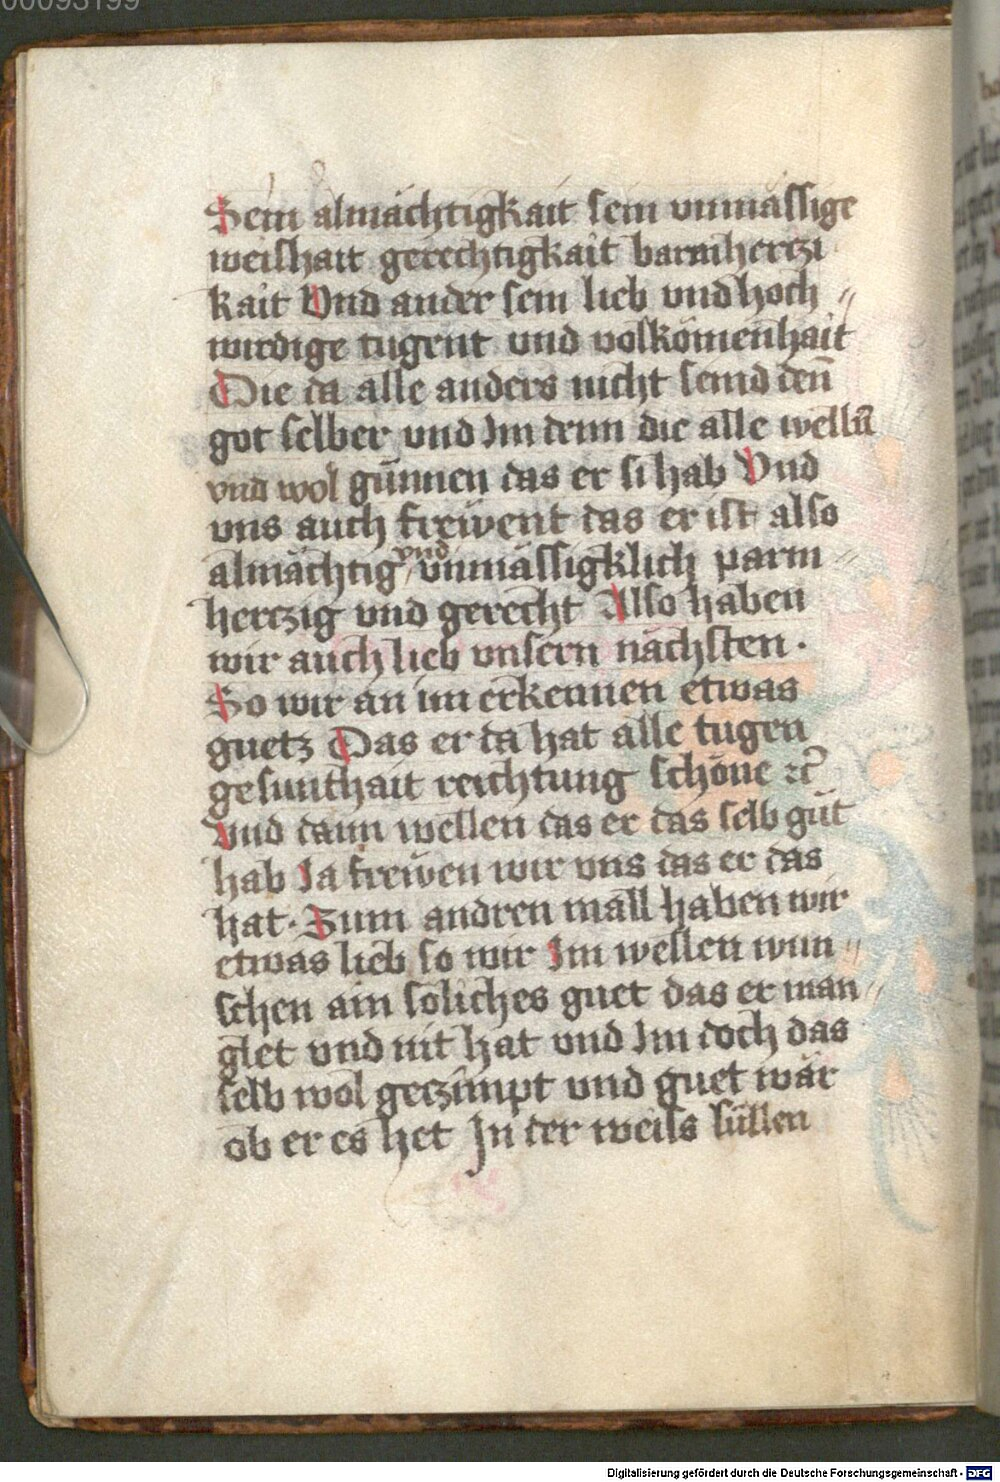 00093199
Sein almächtigkait sein vnmässige
weishait gerechtigkait barmhertzi
kait Vnd ander sein lieb vnd hoch〃
wirdige tugent vnd volkömenhait
Die da alle anders nicht seind den̄
got selber vnd Im denn die alle welln̄
vnd wol günnen das er si hab Vnd
vns auch frewent das er ist also
almächtig vnd vnmässigklich parm〃
hertzig vnd gerecht Also haben
wir auch lieb vnsern nächsten ·
So wir an im erkennen etwas
guetz Das er da hat alle tugen
gesunthait reichtung schöne ꝛc̄
Vnd dann wellen das er das selb gůt
hab Ja frewen wir vns das er das
hat · Zum andren mall haben wir
etwas lieb so wir Im wellen wun〃
schen ain söliches guet das er man〃
glet vnd nit hat vnd Im doch das
selb wol geczimpt vnd guet wär
ob er es het In der weiss süllen
Digitalisierung gefördert durch die Deutsche Forschungsgemeinschaft - DFG